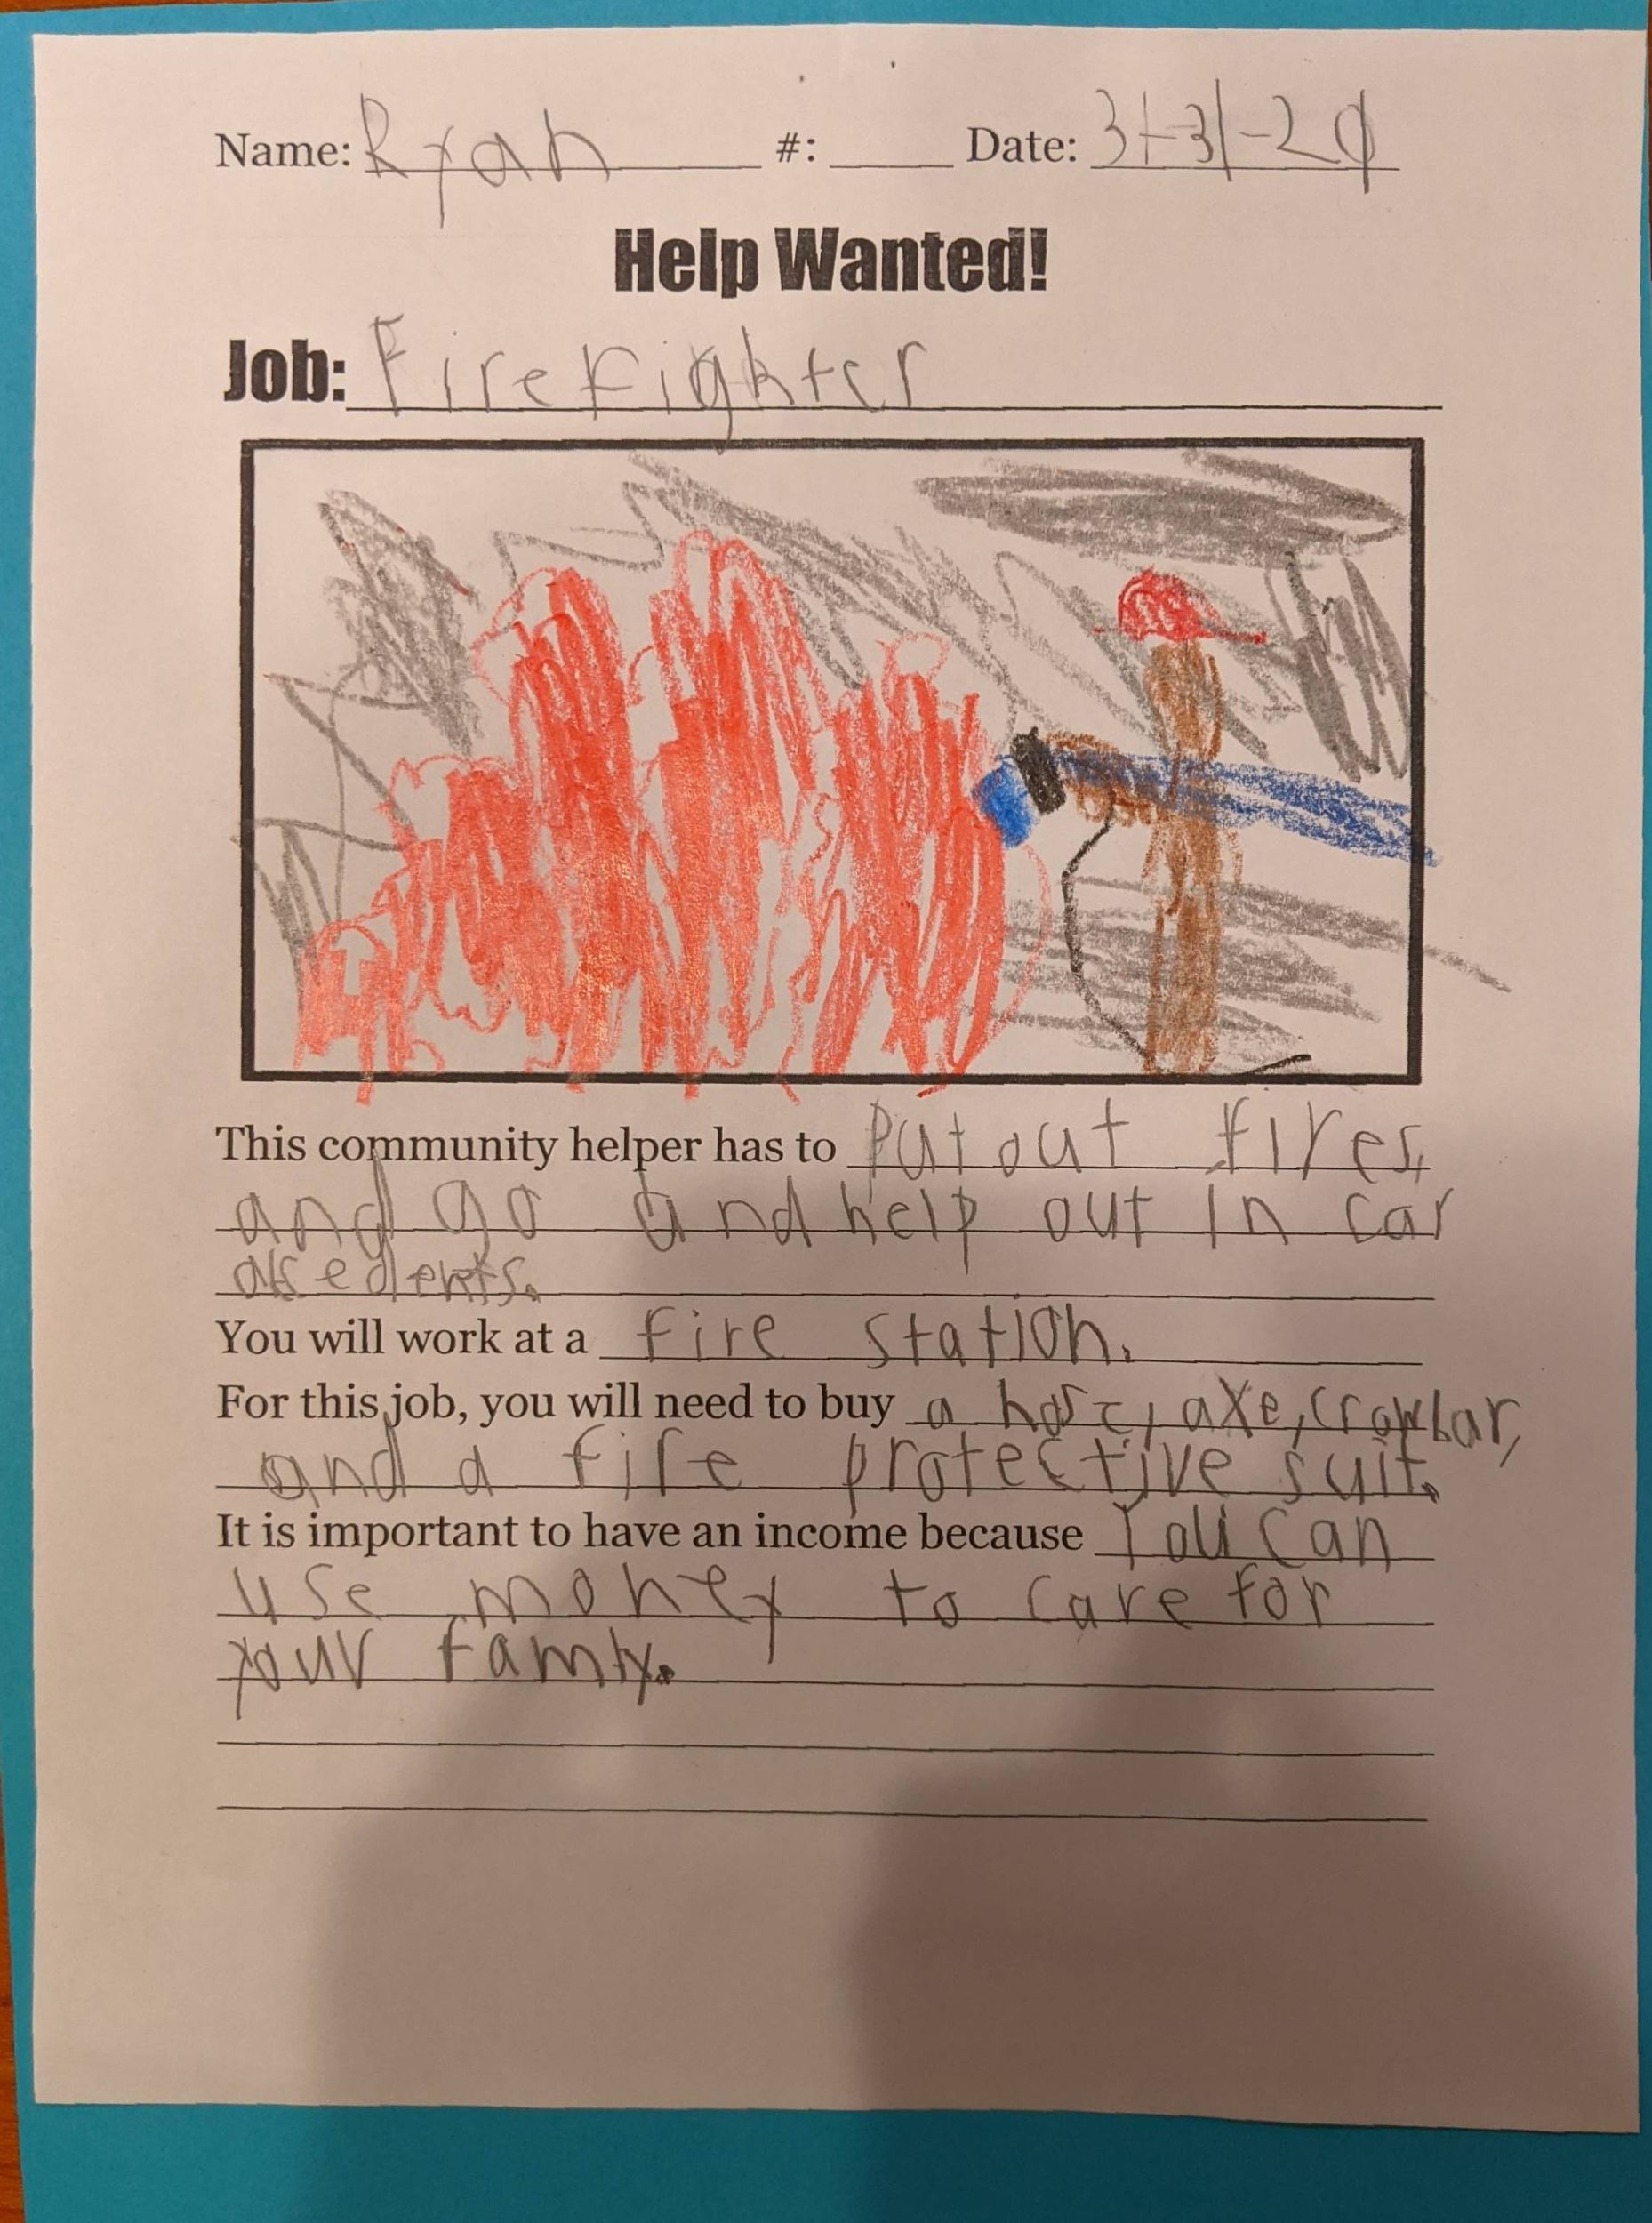 Name: Ryan #: Date: 3-31-20
Help Wanted!
Job: FireFighter
This community helper has to Put out fires,
and go and help out in car
accedents.
You will work at a fire station.
For this job, you will need to buy a hose, axe, crowbar,
and a fire protective suit.
It is important to have an income because You can
use money to care for
your famly.